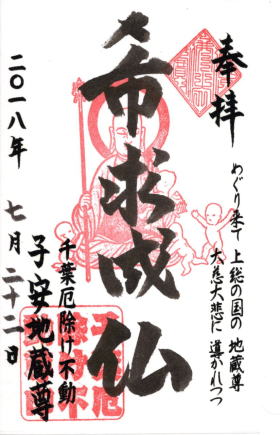 奉拝
めぐり来て 上総の国の 地蔵尊
大慈大悲に 導かれつつ
希求成仏
千葉厄除け不動
子安地蔵尊
二〇一八年 七月二十二日